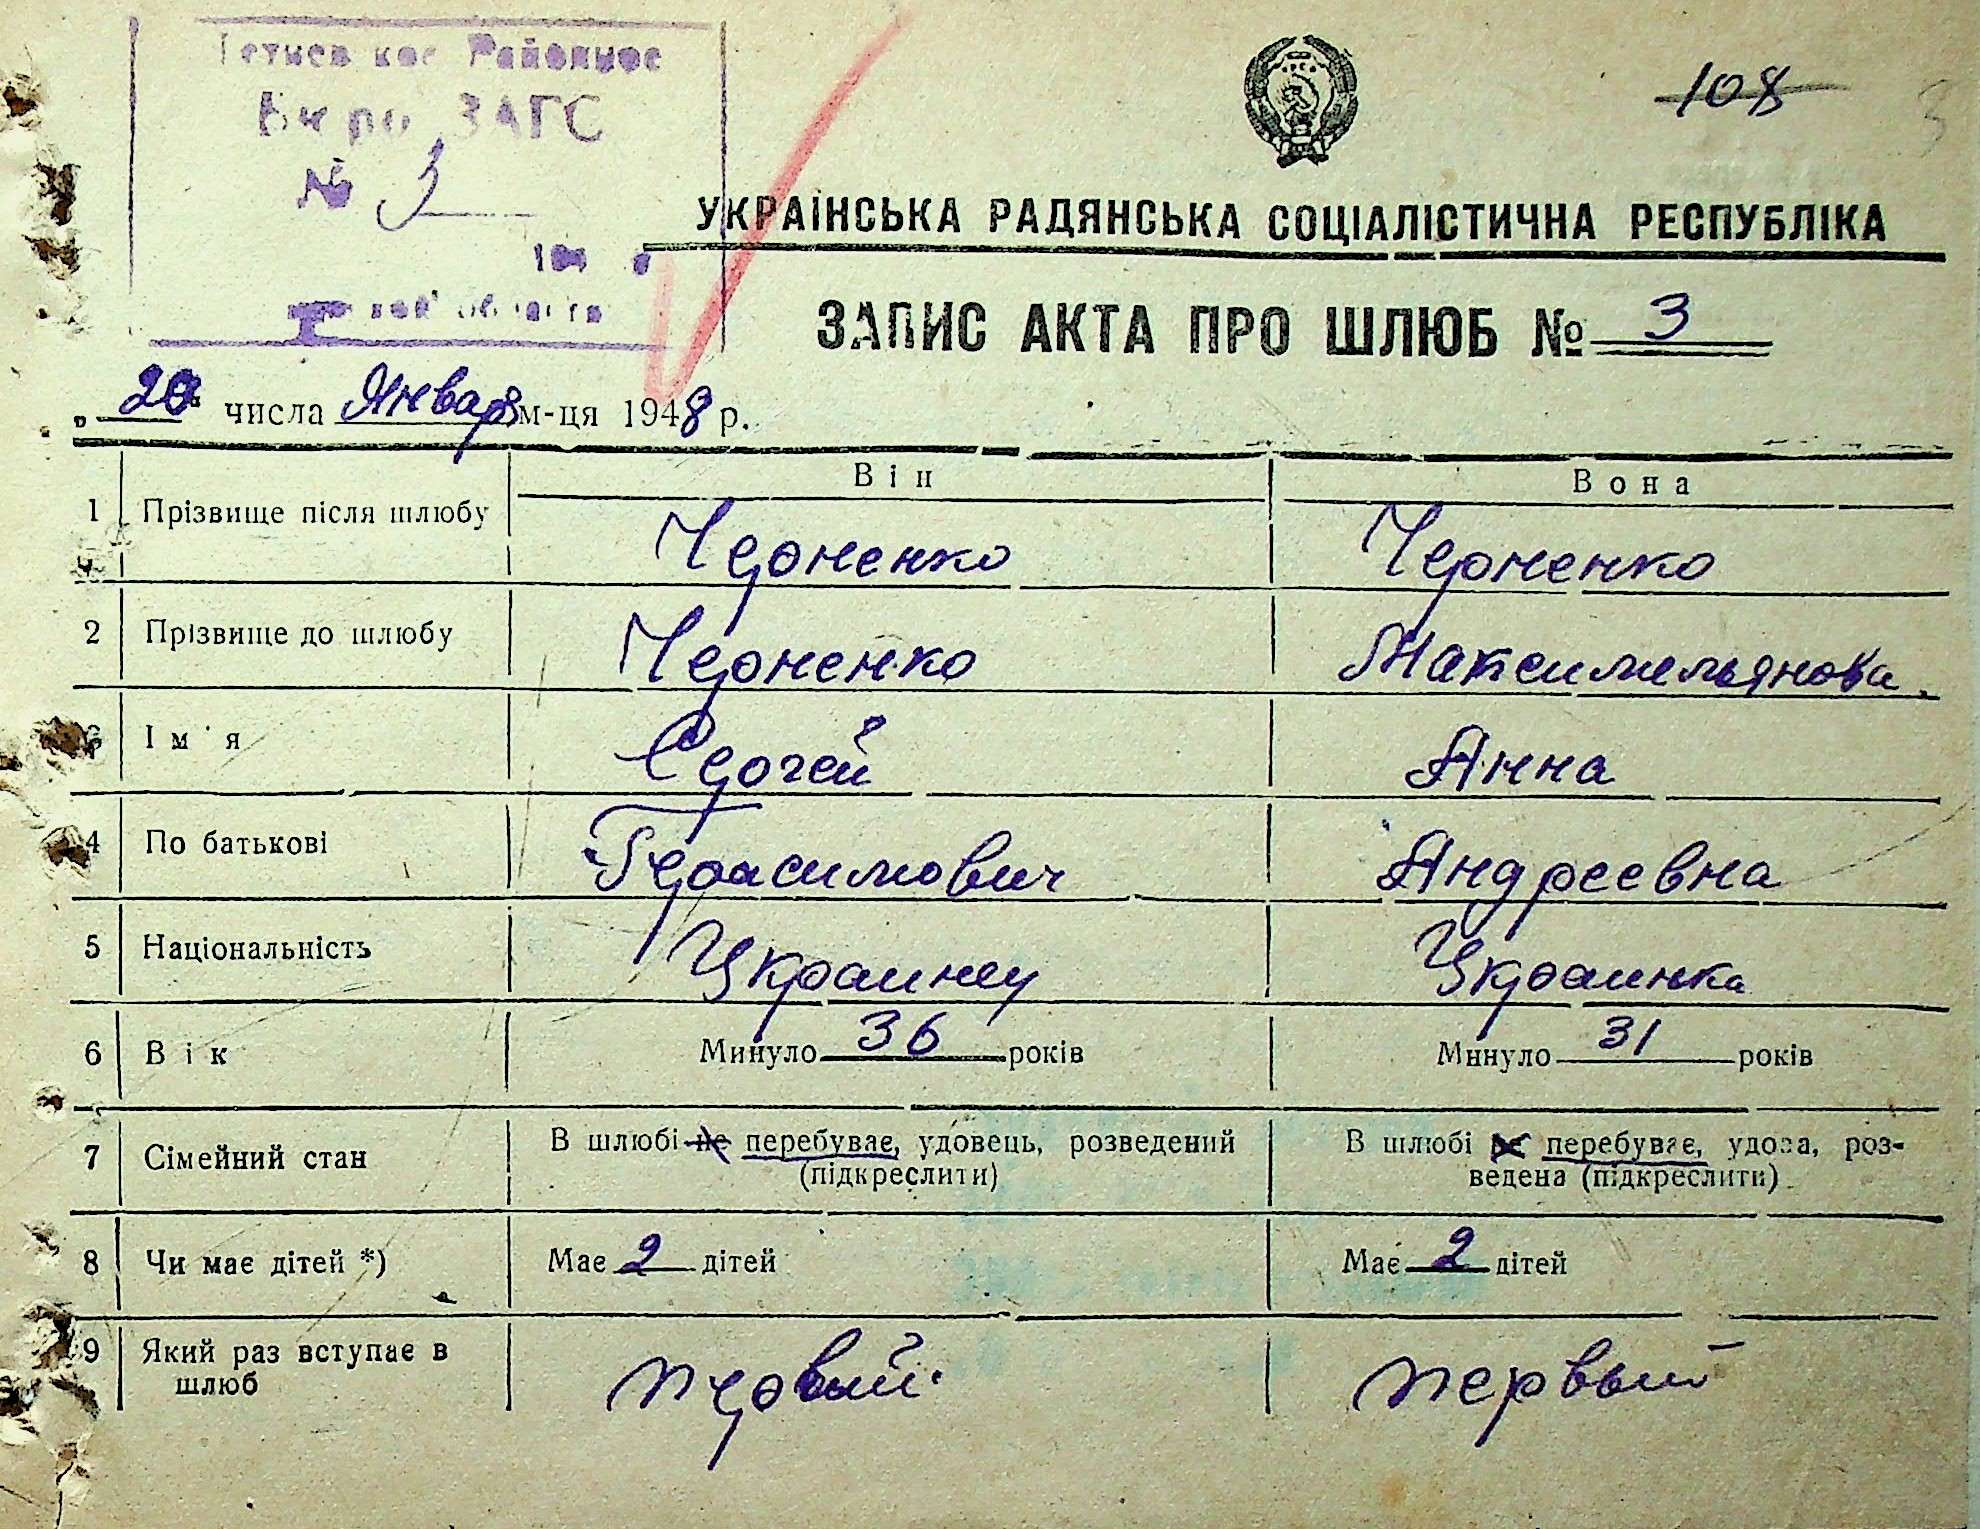 Районное
Бюро ЗАГС
№ 3
194
области
108
3
УКРАЇНСЬКА РАДЯНСЬКА СОЦІАЛІСТИЧНА РЕСПУБЛІКА
ЗАПИС АКТА ПРО ШЛЮБ № 3
„20“ числа Января м-ця 1948 р.
Він Вона
1 Прізвище після шлюбу Черненко Черненко
2 Прізвище до шлюбу Черненко Максимильянова
3 Ім'я Сергей Анна
4 По батькові Герасимович Андреевна
5 Національність Украинец Украинка
6 Вік Минуло 36 років Минуло 31 років
7 Сімейний стан В шлюбі не перебуває, удовець, розведений В шлюбі не перебуває, удова, роз-
(підкреслити) ведена (підкреслити)
8 Чи має дітей *) Має 2 дітей Має 2 дітей
9 Який раз вступає в первый первый
шлюб